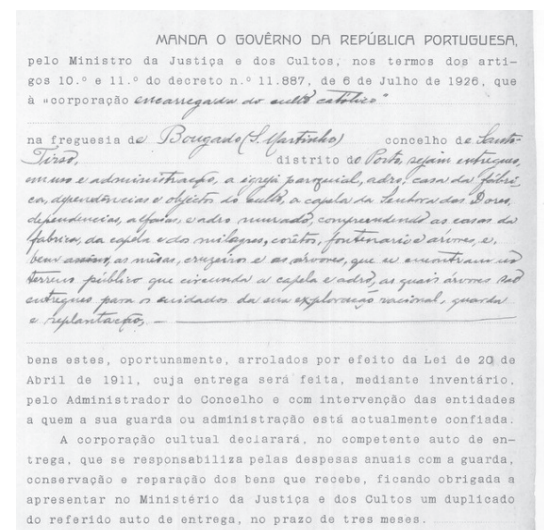 MANDA O GOVÊRNO DA REPÚBLICA PORTUGUESA,
pelo Ministro da Justiça e dos Cultos, nos termos dos arti-
gos 10.º e 11.º do decreto n.º 11.887, de 6 de Julho de 1926, que
à "corporação encarregada do culto católico"
na freguesia de Bougado (S. Martinho) concelho de Santo
Tirso, distrito do Porto, sejam entregues,
em uso e administração, a igreja paroquial, adro, casa da fábri-
ca, dependências e objectos do culto, a capela da Senhora das Dores,
dependencias, alfaias, e adro murado, compreendendo as casas da
fabrica, da capela e dos milagres, corêto, fontenario e árvores, e,
bem assim, as mêsas, cruzeiros e as árvores, que se encontram no
terreno público que circunda a capela e adro, as quais árvores são
entregues para os cuidados da sua exploração racional, guarda
e replantação, —
bens estes, oportunamente, arrolados por efeito da Lei de 20 de
Abril de 1911, cuja entrega será feita, mediante inventário,
pelo Administrador do Concelho e com intervenção das entidades
a quem a sua guarda ou administração está actualmente confiada.
A corporação cultual declarará, no competente auto de en-
trega, que se responsabiliza pelas despesas anuais com a guarda,
conservação e reparação dos bens que recebe, ficando obrigada a
apresentar no Ministério da Justiça e dos Cultos um duplicado
do referido auto de entrega, no prazo de tres meses.